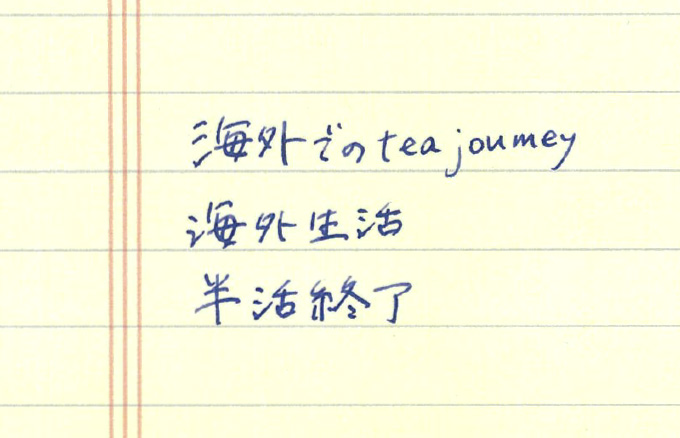 海外でのtea joumey
海外生活
半活終了